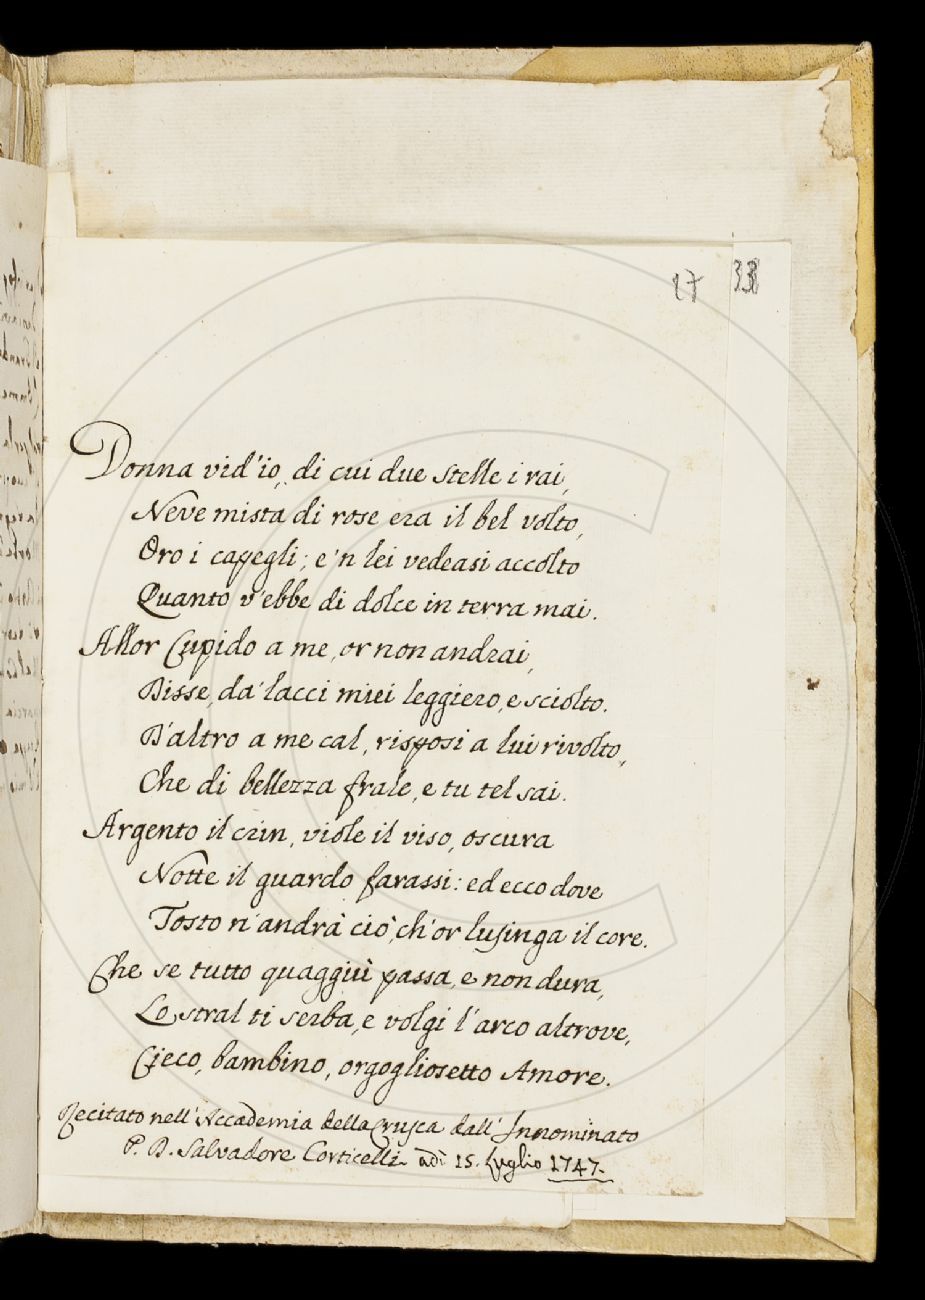 17 33
Donna vid'io, di cui due stelle i rai,
Neve mista di rose era il bel volto,
Oro i capegli; e 'n lei vedeasi accolto
Quanto v'ebbe di dolce in terra mai.
Allor Cupido a me, or non andrai,
Disse, da' lacci miei leggiero, e sciolto.
D'altro a me cal, risposi a lui rivolto,
Che di bellezza frale, e tu tel sai.
Argento il crin, viole il viso, oscura
Notte il guardo farassi: ed ecco dove
Tosto n'andrà ciò, ch'or lusinga il core.
Che se tutto quaggiù passa, e non dura,
Lo stral ti serba, e volgi l'arco altrove,
Cieco, bambino, orgogliosetto Amore.
Recitato nell'Accademia della Crusca dall'Innominato
P. D. Salvadore Corticelli adì 15. Luglio 1747.